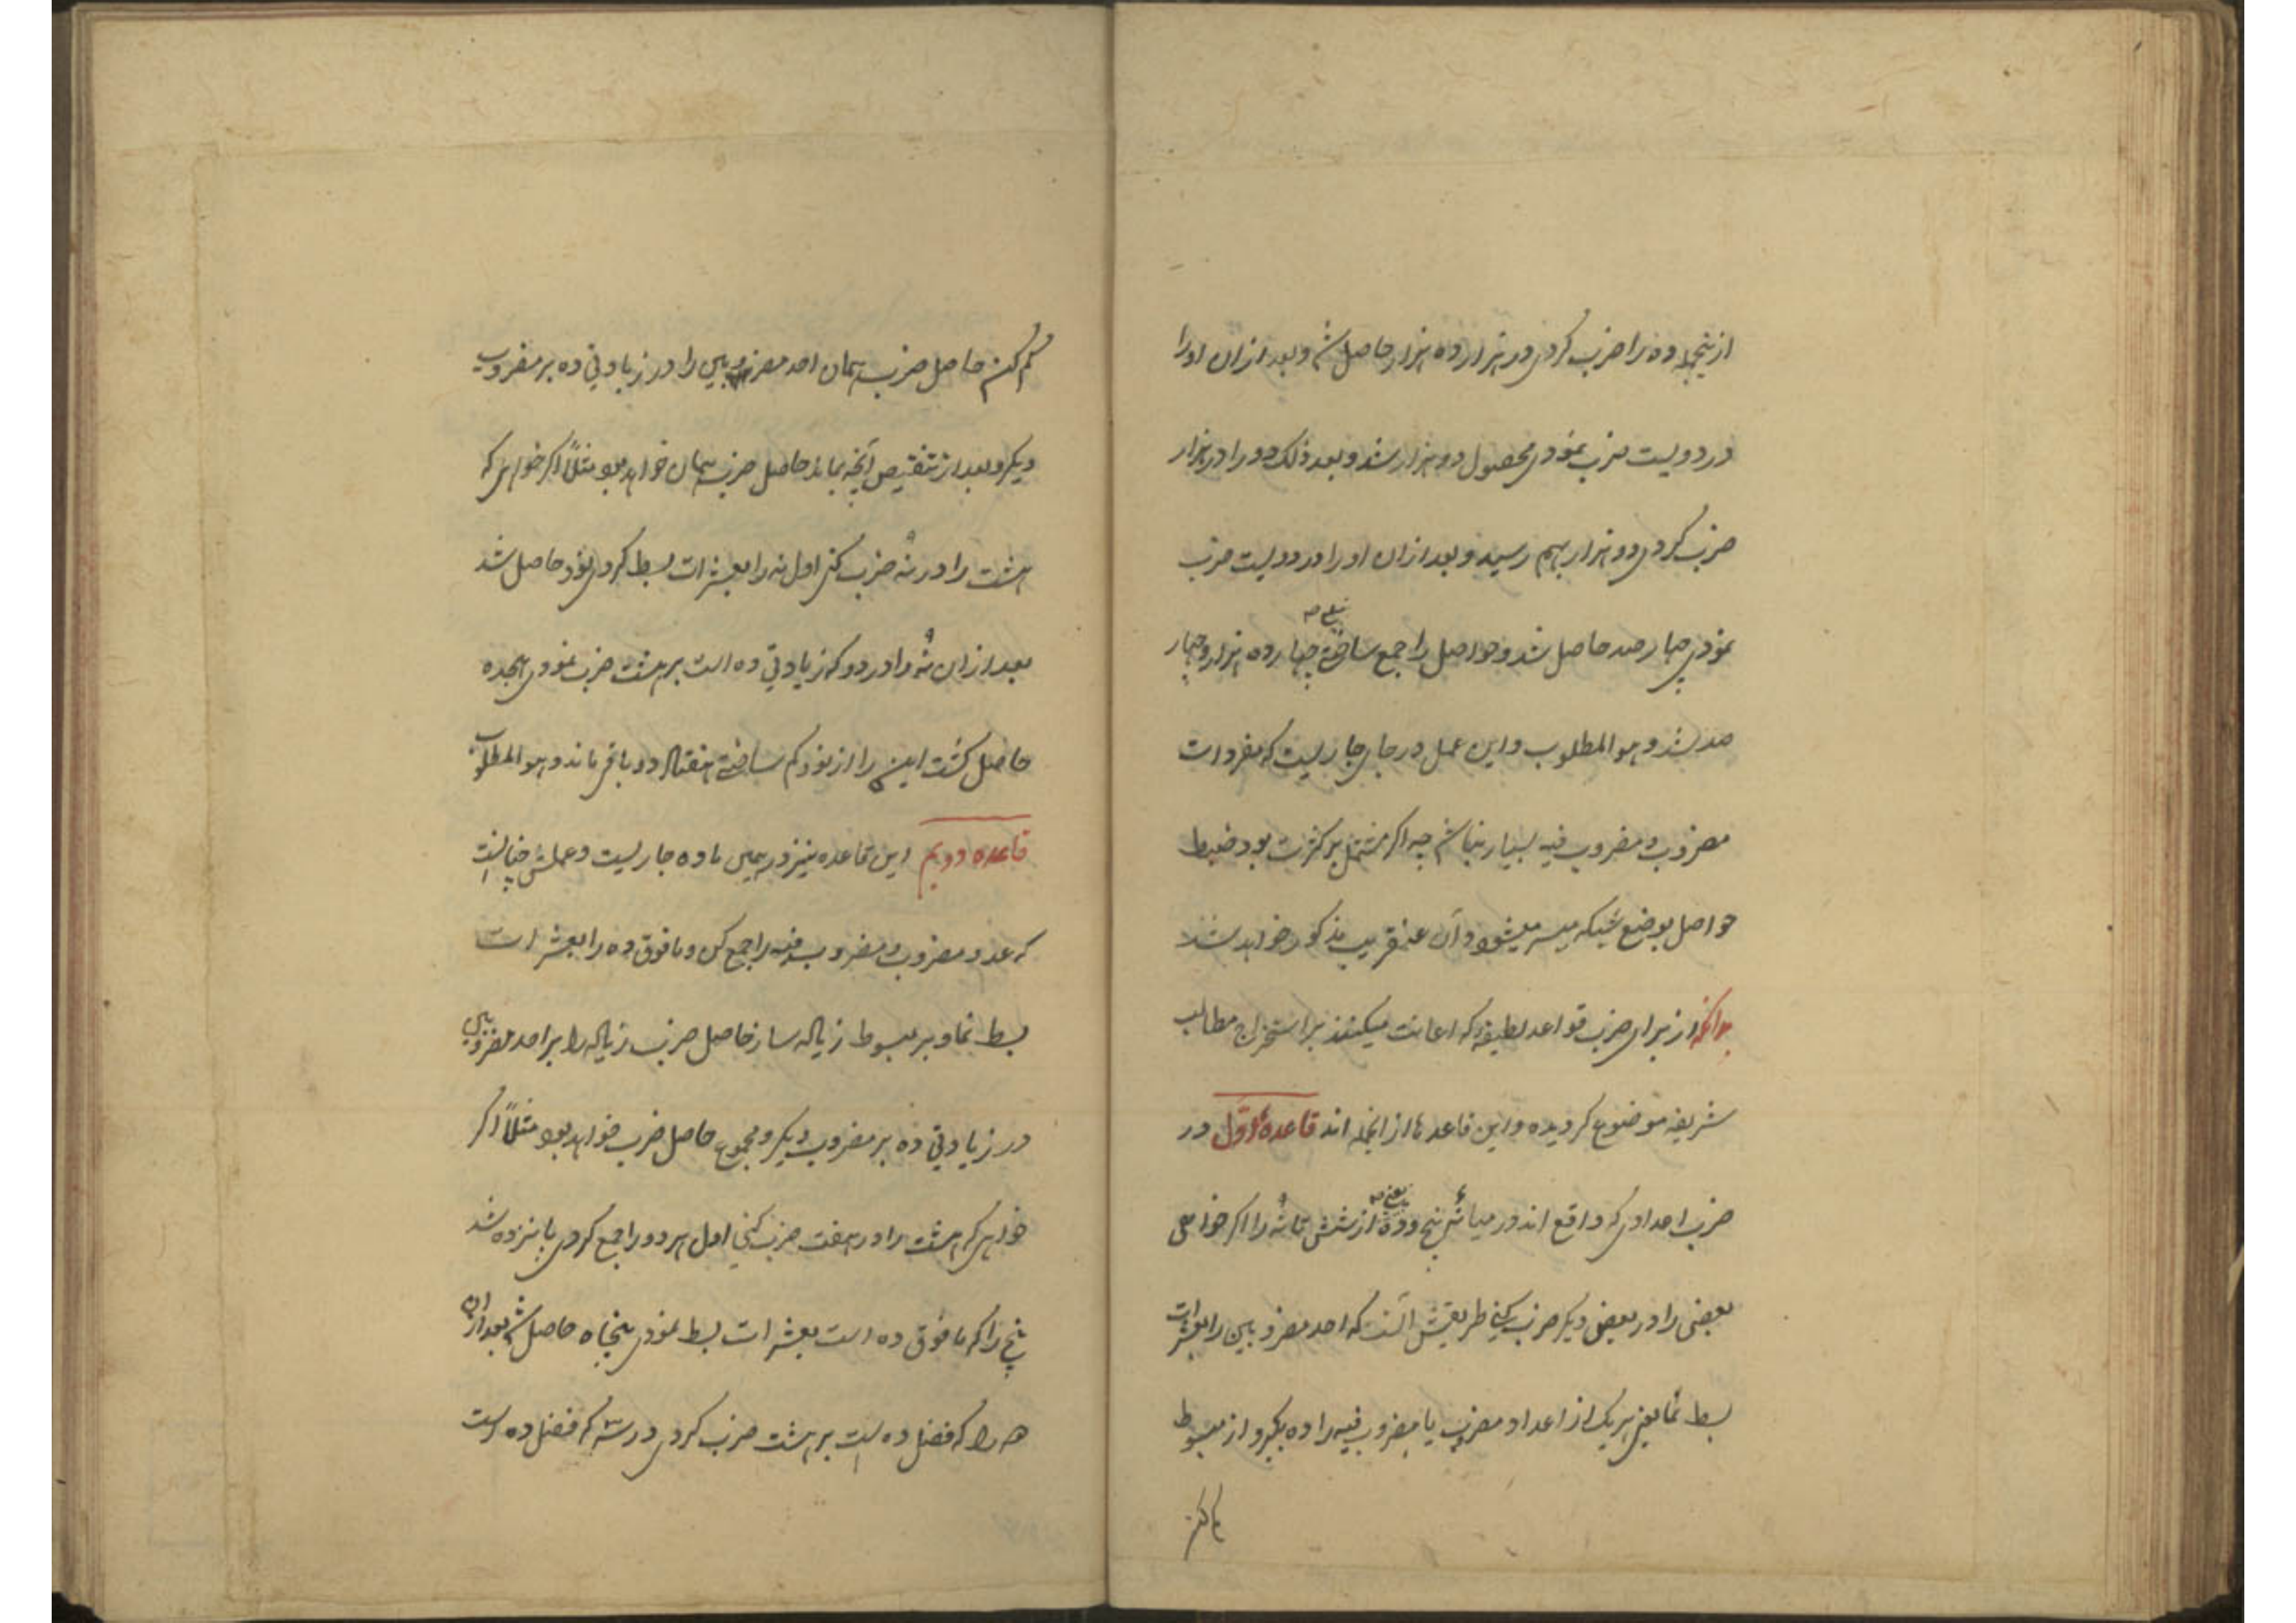 ازینجمله ده را ضرب کردی در هزار ده هزار حاصل شد و بعد ازان او را
در دویست ضرب نمودی محصول دو هزار شد و بعد ذلک دو را در هزار
ضرب کردی دو هزار بهم رسید و بعد ازان او را در دویست ضرب
نمودی چهار صد حاصل شد و حواصل را جمع ساختی چهارده هزار و چهار
صد شد و هو المطلوب و این عمل در جای جاریست که مفردات
مضروب و مضروب فیه بسیار نباشد چه اگر مشتمل بر کثرت بود ضبط
حواصل بوضع شبکه میسر میشود و آن عنقریب مذکور خواهد شد
بدانکه از برای ضرب قواعد لطیفه که اعانت میکنند بر استخراج مطالب
شریفه موضوع گردیده و این قاعدها ازانجمله اند قاعدهٔ اوّل در
ضرب احدادی که واقع اند در میانهٔ پنج و ده یعنی از شش تا نه را اگر خواهی
بعضی را در بعض دیگر ضرب کنی طریقش آنست که احد مضروبین را بعشرات
بسط نما یعنی هر یک از اعداد مضروب یا مضروب فیه را ده بگیر و از مبسوط
کم کن
کم کن حاصل ضرب همان احد مضروبین را در زیادتی ده بر مضروب
دیگر و بعد از تنقیص آنچه بماند حاصل ضرب همان خواهد بود مثلاً اگر خواهی که
هشت را در نه ضرب کنی اول نه را بعشرات بسط کردی نود حاصل شد
بعد ازان نه را در دو که زیادتی ده است بر هشت ضرب نمودی هجده
حاصل گشت این را از نود کم ساختی هفتاد و دو باقی ماند و هو المطلوب
قاعده دویم این قاعده نیز در همین ماده جاریست و عملش چنانست
که عدد مضروب و مضروب فیه را جمع کن و ما فوق ده را بعشرات
بسط نما و بر مبسوط زیاده ساز حاصل ضرب زیاده را بر احد مضروبین
در زیادتی ده بر مضروب دیگر و مجموع حاصل ضرب خواهد بود مثلاً اگر
خواهی که هشت را در هفت ضرب کنی اول هر دو را جمع کردی پانزده شد
پنج را که ما فوق ده است بعشرات بسط نمودی پنجاه حاصل شد بعد ازان
را که فضل ده است بر هشت ضرب کردی در سه که فضل ده است